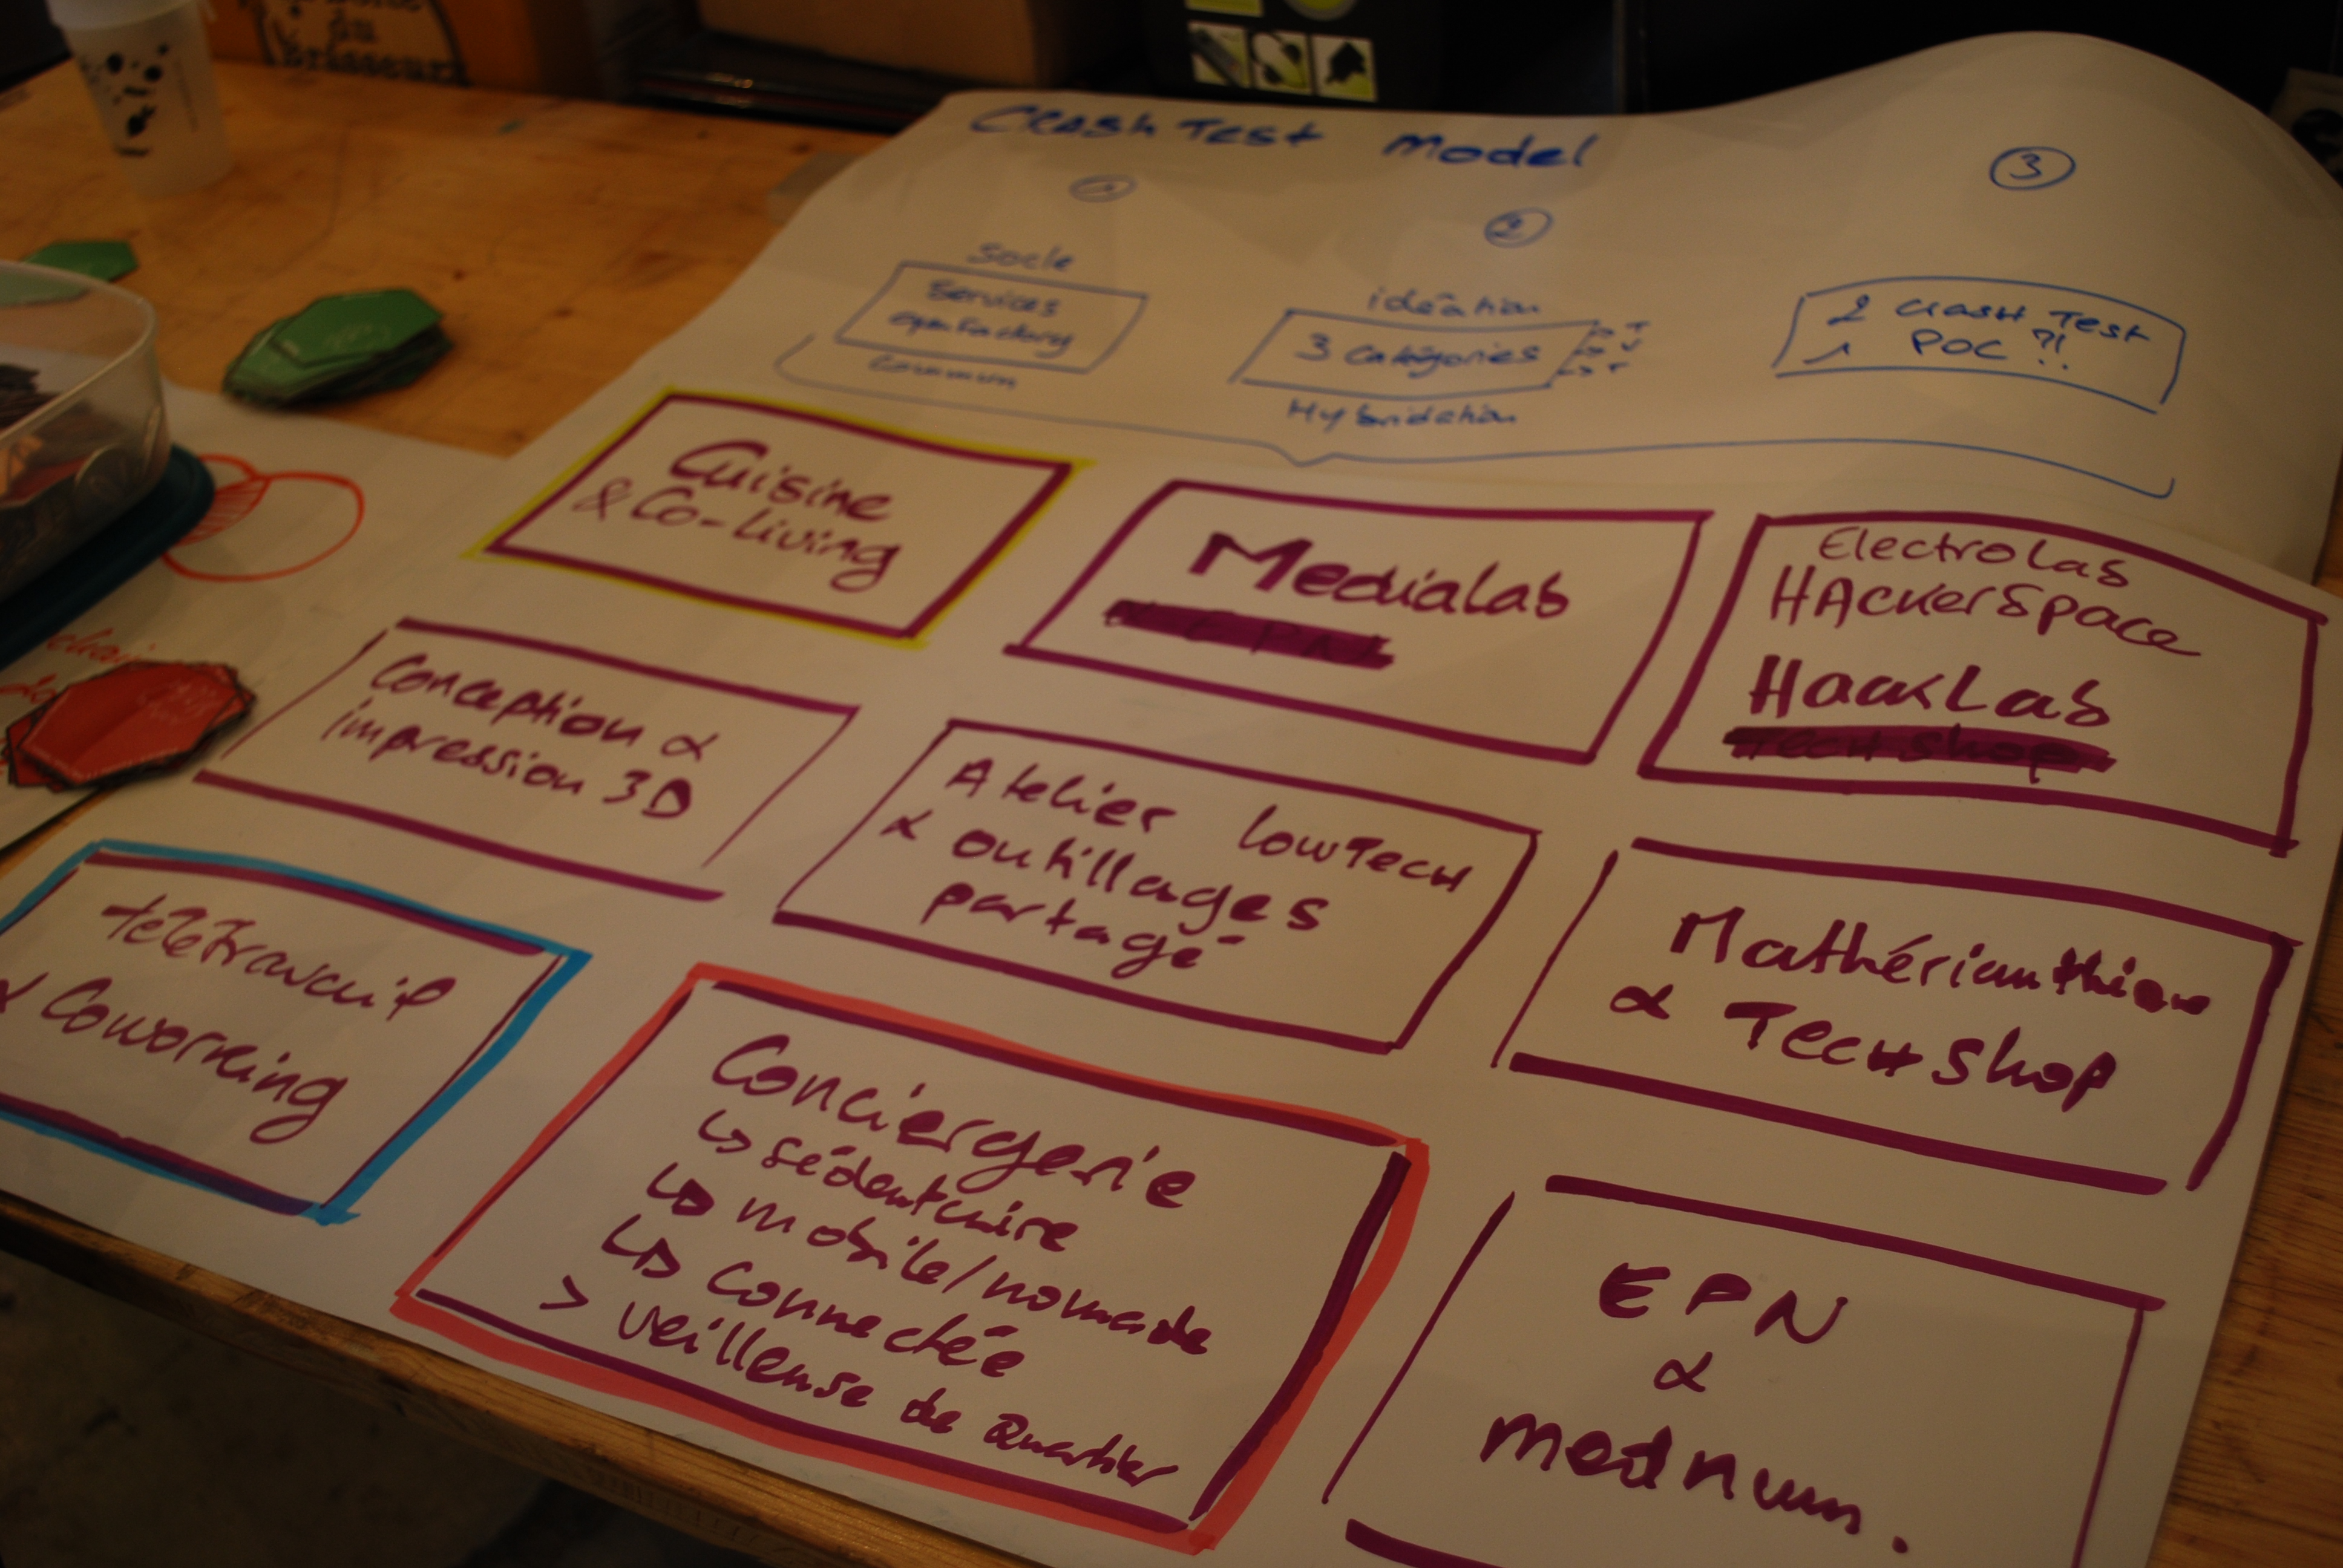 du
Brasseur
Crash Test Model
1
2
3
Socle
Services
openfactory
Commun
idéation
3 Catégories
Hybridation
2 Crash Test
1 POC ?!
Cuisine
& Co-Living
MediaLab
ElectroLab
HAckerSpace
HackLab
TechShop
Conception &
impression 3D
Atelier LowTech
& outillages
partagé
Mathérianthion
& TechShop
télétravail
& Coworking
Conciergerie
↳ sédentaire
↳ mobile/nomade
↳ Connectée
> veilleuse de Quartier
EPN
&
mednum.